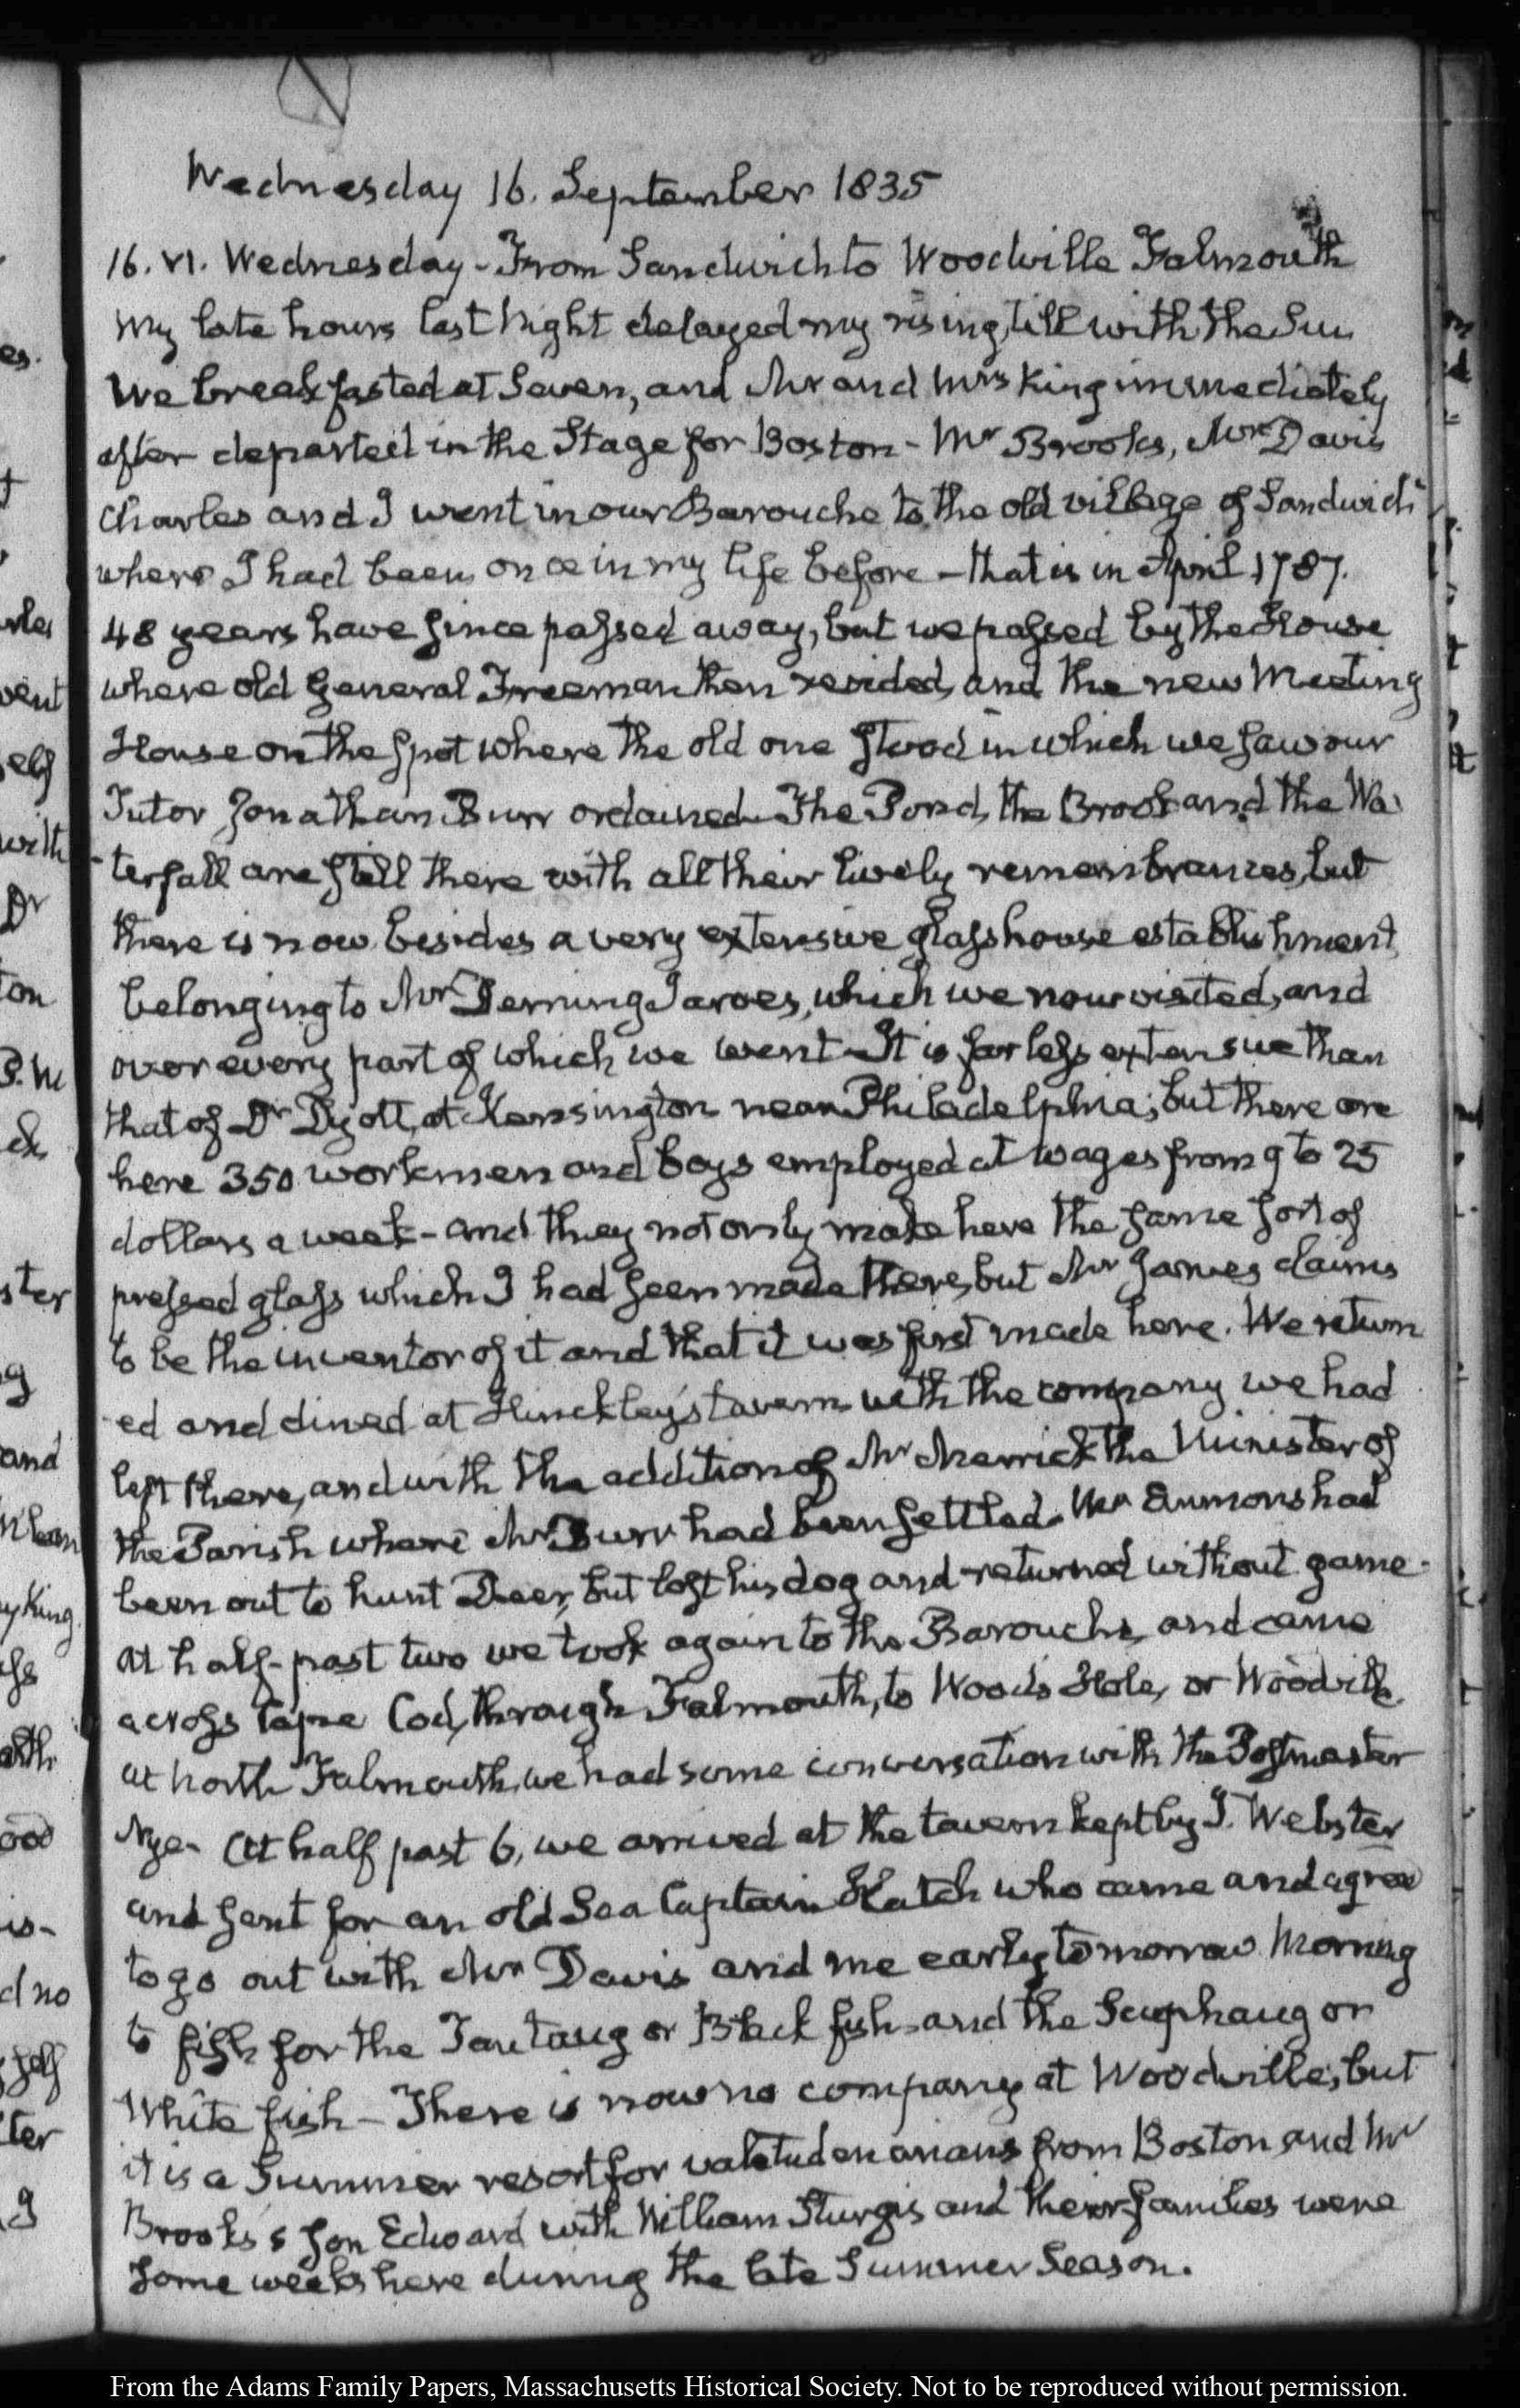 Wednesday 16. September 1835
16. VI. Wednesday - From Sandwich to Woodville Falmouth
My late hours last Night delayed my rising, till with the Sun
We breakfasted at Seven, and Mr and Mrs King immediately
after departed in the Stage for Boston - Mr Brooks, Mr Davis
Charles and I went in our Barouche to the old village of Sandwich
where I had been once in my life before - that is in April 1787.
48 years have since passed away, but we passed by the House
where old General Freeman then resided, and the new Meeting
House on the spot where the old one stood in which we saw our
Tutor Jonathan Burr ordained - The Pond, the Brook and the Wa-
-terfall are still there with all their lively remembrances, but
there is now besides a very extensive glass house establishment,
belonging to Mr Deming Jarves, which we now visited, and
over every part of which we went - It is far less extensive than
that of Dr Dyott, at Kensington near Philadelphia; but there are
here 350 workmen and boys employed at wages from 9 to 25
dollars a week - and they not only make here the same sort of
pressed glass which I had seen made there, but Mr Jarves claims
to be the inventor of it and that it was first made here. We return-
-ed and dined at Hinckley's tavern with the company we had
left there, and with the addition of Mr Merrick the Minister of
the Parish where Mr Burr had been settled. Mr Emmons had
been out to hunt Deer, but lost his dog and returned without game -
At half-past two we took again to the Barouche, and came
across Cape Cod, through Falmouth, to Wood's Hole, or Woodville
at North Falmouth, we had some conversation with the Postmaster
Nye - At half past 6, we arrived at the tavern kept by J. Webster
and sent for an old Sea Captain Hatch who came and agreed
to go out with Mr Davis and me early tomorrow Morning
to fish for the Tautaug or Black fish - and the Scuphaug or
White fish - There is now no company at Woodville, but
it is a Summer resort for valetudenarians from Boston, and Mr
Brooks's son Edward with William Sturgis and their families were
some weeks here during the late Summer Season.
From the Adams Family Papers, Massachusetts Historical Society. Not to be reproduced without permission.